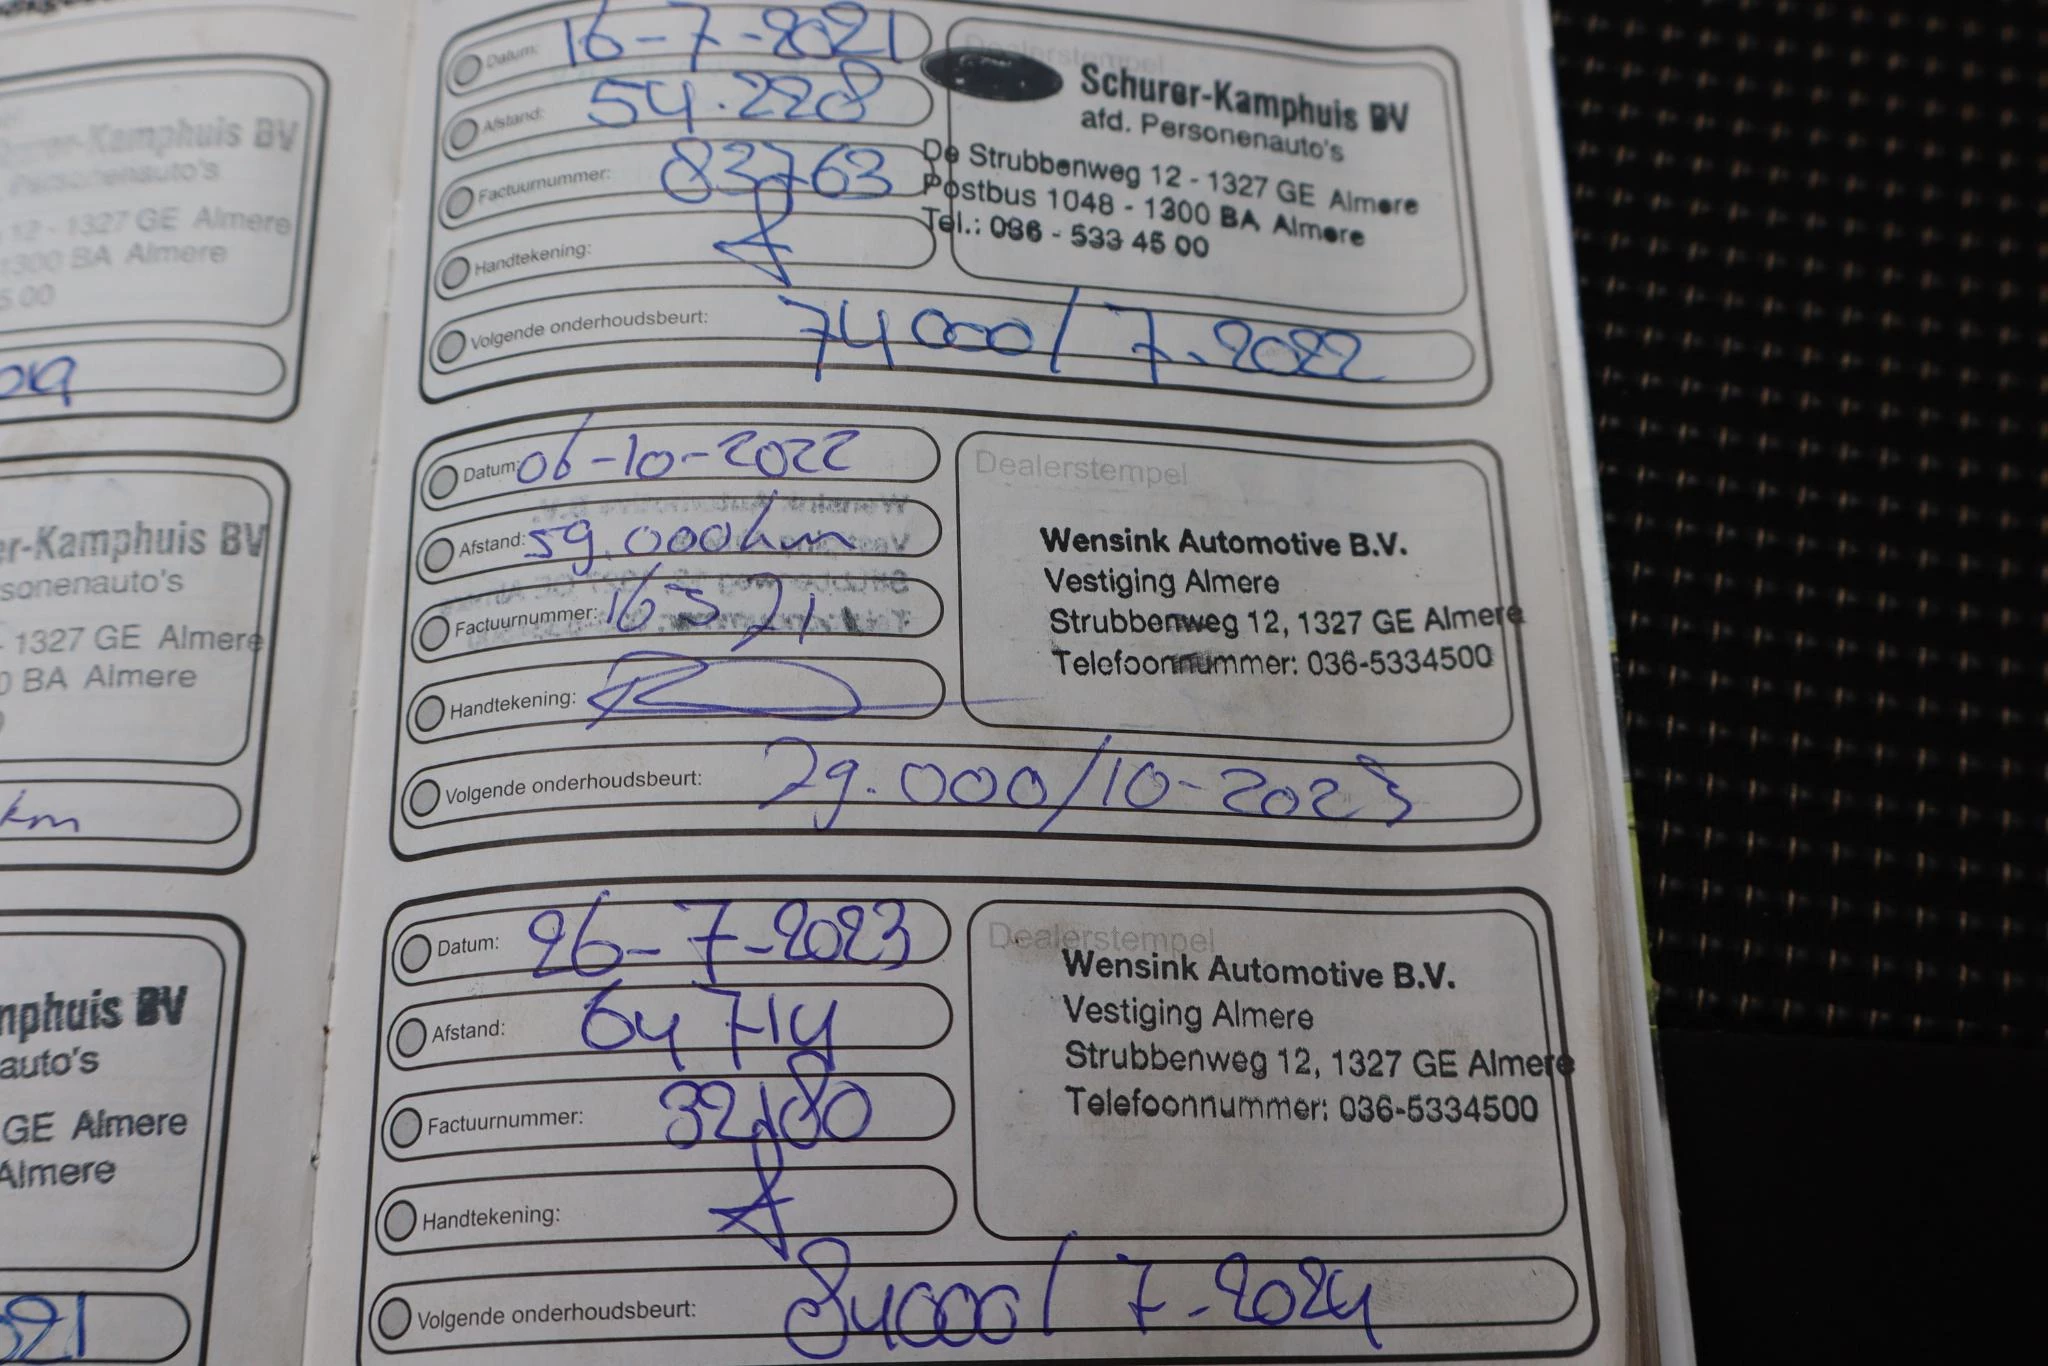 Datum: 16-7-2021
Afstand: 54.228
Factuurnummer: 83763
Handtekening:
Volgende onderhoudsbeurt: 74000/7-2022
Dealerstempel
Schurer-Kamphuis BV
afd. Personenauto's
De Strubbenweg 12 - 1327 GE Almere
Postbus 1048 - 1300 BA Almere
Tel.: 036 - 533 45 00
Datum: 06-10-2022
Afstand: 59.000km
Factuurnummer: 16571
Handtekening:
Volgende onderhoudsbeurt: 79.000/10-2023
Dealerstempel
Wensink Automotive B.V.
Vestiging Almere
Strubbenweg 12, 1327 GE Almere
Telefoonnummer: 036-5334500
Datum: 26-7-2023
Afstand: 64714
Factuurnummer: 32180
Handtekening:
Volgende onderhoudsbeurt: 84000/7-2024
Dealerstempel
Wensink Automotive B.V.
Vestiging Almere
Strubbenweg 12, 1327 GE Almere
Telefoonnummer: 036-5334500
-Kamphuis BV
Personenauto's
12 - 1327 GE Almere
1300 BA Almere
5 00
er-Kamphuis BV
sonenauto's
- 1327 GE Almere
0 BA Almere
km
mphuis BV
auto's
GE Almere
Almere
21